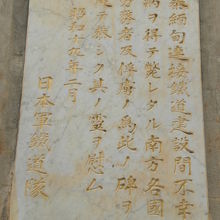 泰緬甸連接鐵道建設間不幸
病ヲ得テ斃レタル南方各國
労務者及俘虜ノ為此ノ碑ヲ
建テ恭シク其ノ霊ヲ慰ム
昭和十九年二月
日本軍鐵道隊